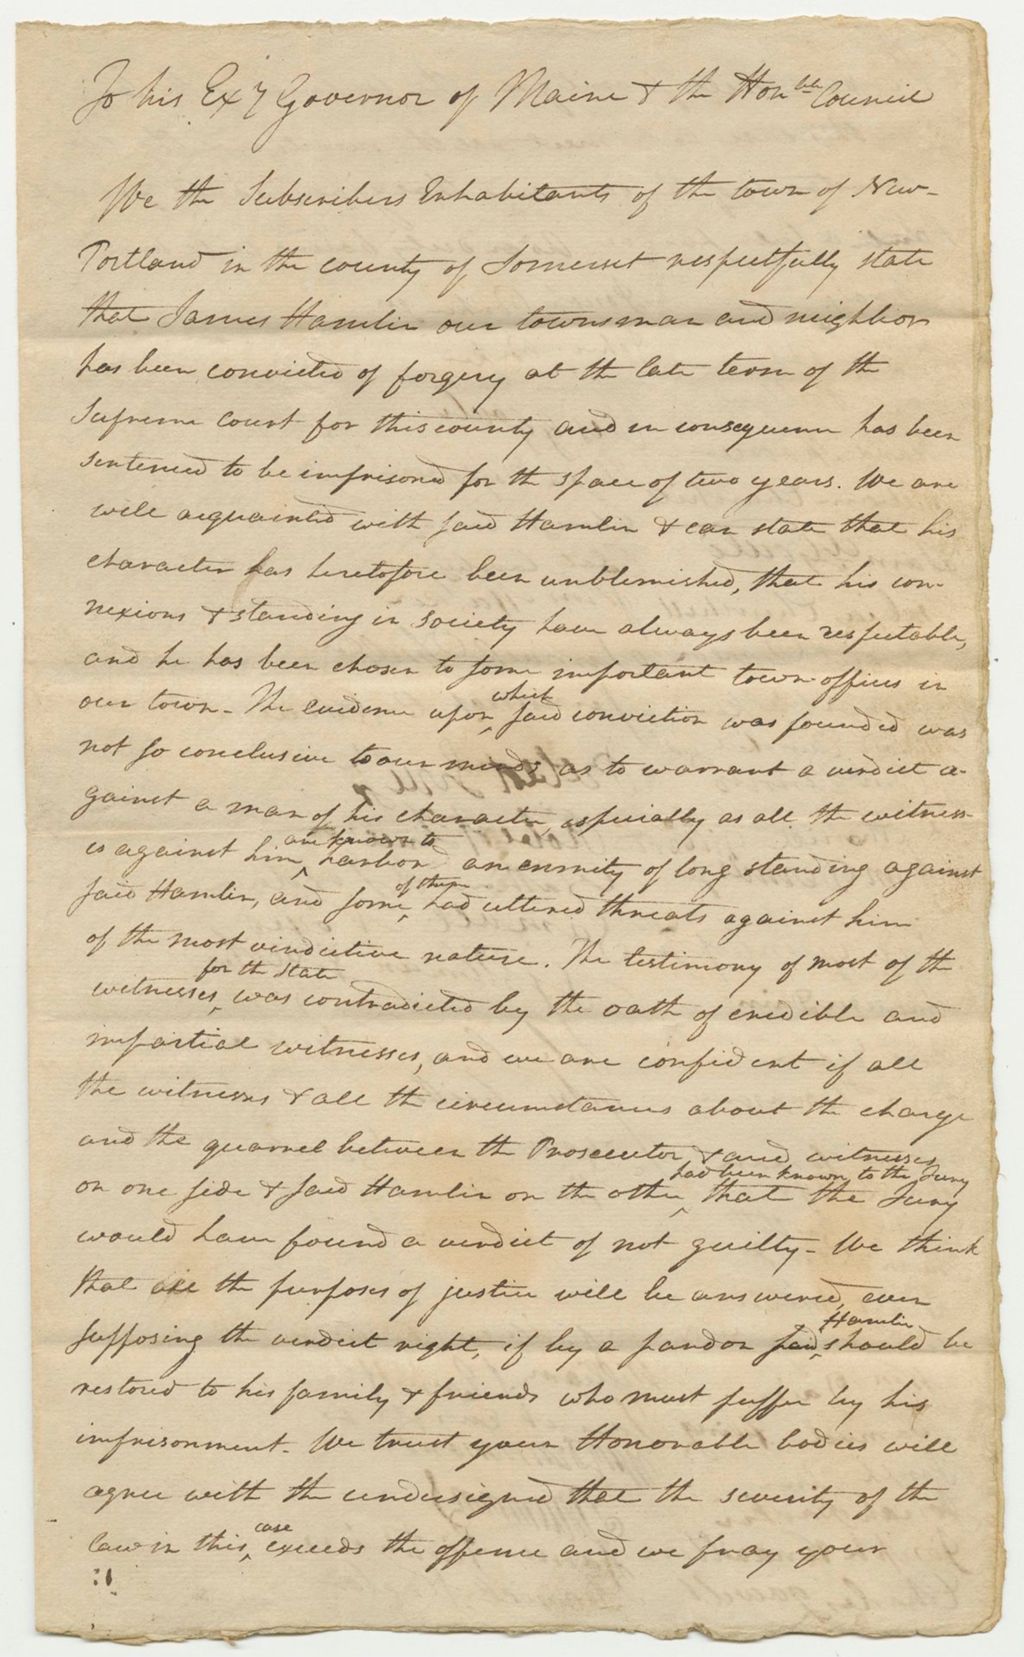 To his Exy Governor of Maine & the Honble Council
We the Subscribers Inhabitants of the town of New-
Portland in the county of Somerset respectfully state
that James Hamlin our townsman and neighbor
has been convicted of forgery at the late term of the
Supreme Court for this county and in consequence has been
sentenced to be imprisoned for the space of two years. We are
well acquainted with said Hamlin & can state that his
character has heretofore been unblemished, that his con-
nexions & standing in society have always been respectable,
and he has been chosen to some important town offices in
our town - The evidence upon which said conviction was founded was
not so conclusive to our minds as to warrant a verdict a-
gainst a man of his character especially as all the witness-
es against him are known to harbor an enmity of long standing against
said Hamlin, and some of them had uttered threats against him
of the most vindictive nature. The testimony of most of the
witnesses for the State was contradicted by the oath of credible and
impartial witnesses, and we are confident if all
the witnesses & all the circumstances about the charge
and the quarrel between the Prosecutor & witnesses
on one side & said Hamlin on the other had been known to the Jury that the Jury
would have found a verdict of not guilty - We think
that all the purposes of justice will be answered, even
supposing the verdict right, if by a pardon said Hamlin should be
restored to his family & friends who must suffer by his
imprisonment - We trust your Honorable bodies will
agree with the undersigned that the severity of the
law in this case exceeds the offence and we pray your